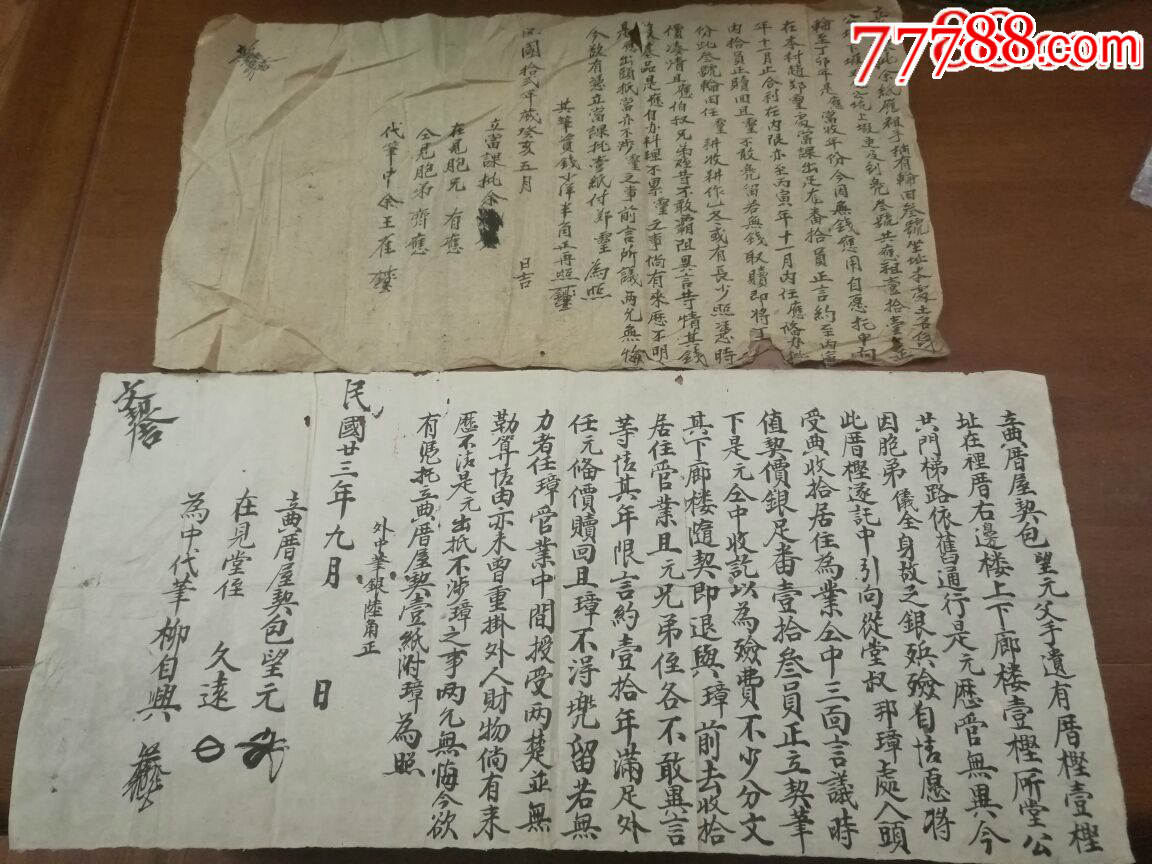 77788.com
公
輪至丁卯年是應當收年份今因無錢應用自愿托中
在本村趙鄭 處當課出足番拾員正言約至丙寅
年十一月止合利在內限亦至丙寅年十一月內任應俻
內拾員正贖回且 不敢兜留若無錢取贖即將丁
份此叁號輪田任 耕收耕作一冬或有長少照還時
價凑清且應伯叔兄弟侄等不敢霸阻異言等情其錢
是應自办料理不累 之事倘有來歷不明
是應出頭抵當亦不涉 之事前言所議兩允無悔
今欲有憑立當課批壹紙付鄭 為照
其筆資錢小洋半角正再照
民國拾弍年歲癸亥五月 日吉
立當課批余
在見胞兄 有應
仝見胞弟 齊應
代筆中余玉雀
立典厝屋契包望元父手遺有厝樫壹樫
址在裡厝右邊楼上下廊楼壹樫一所堂公
共門梯路依舊通行是元歷管無異今
因胞弟儀全身故乏銀殯殮自情愿將
此厝樫遂託中引向從堂叔邦璋處入頭
受典收拾居住為業仝中三面言議時
值契價銀足番壹拾叁員正立契筆
下是元仝中收訖以為殮費不少分文
其下廊楼隨契即退與璋前去收拾
居住管業且元兄弟侄各不敢異言
等情其年限言約壹拾年滿足外
任元俻價贖回且璋不得兜留若無
力者任璋管業中間授受兩楚並無
勒算情由亦未曾重掛外人財物倘有來
歷不浩是元出抵不涉璋之事兩允無悔今欲
有憑托立典厝屋契壹紙附璋為照
外中筆銀陸角正
民國廿三年九月 日
立典厝屋契包望元
在見堂侄 久遠
為中代筆柳自興